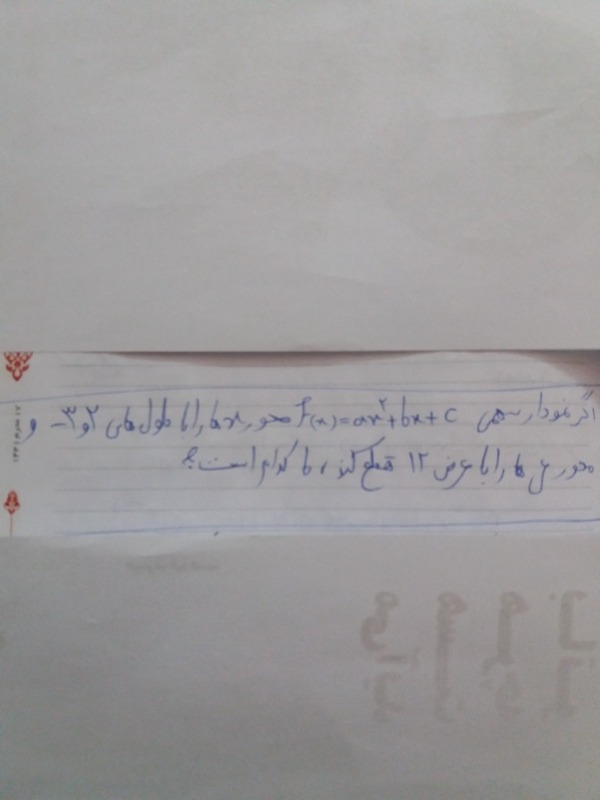 اگر نمودار سهمی f(x)=ax²+bx+c محور xها را با طول های ۲ و ۳- و
محور yها را با عرض ۱۲ قطع کند، کدام است؟